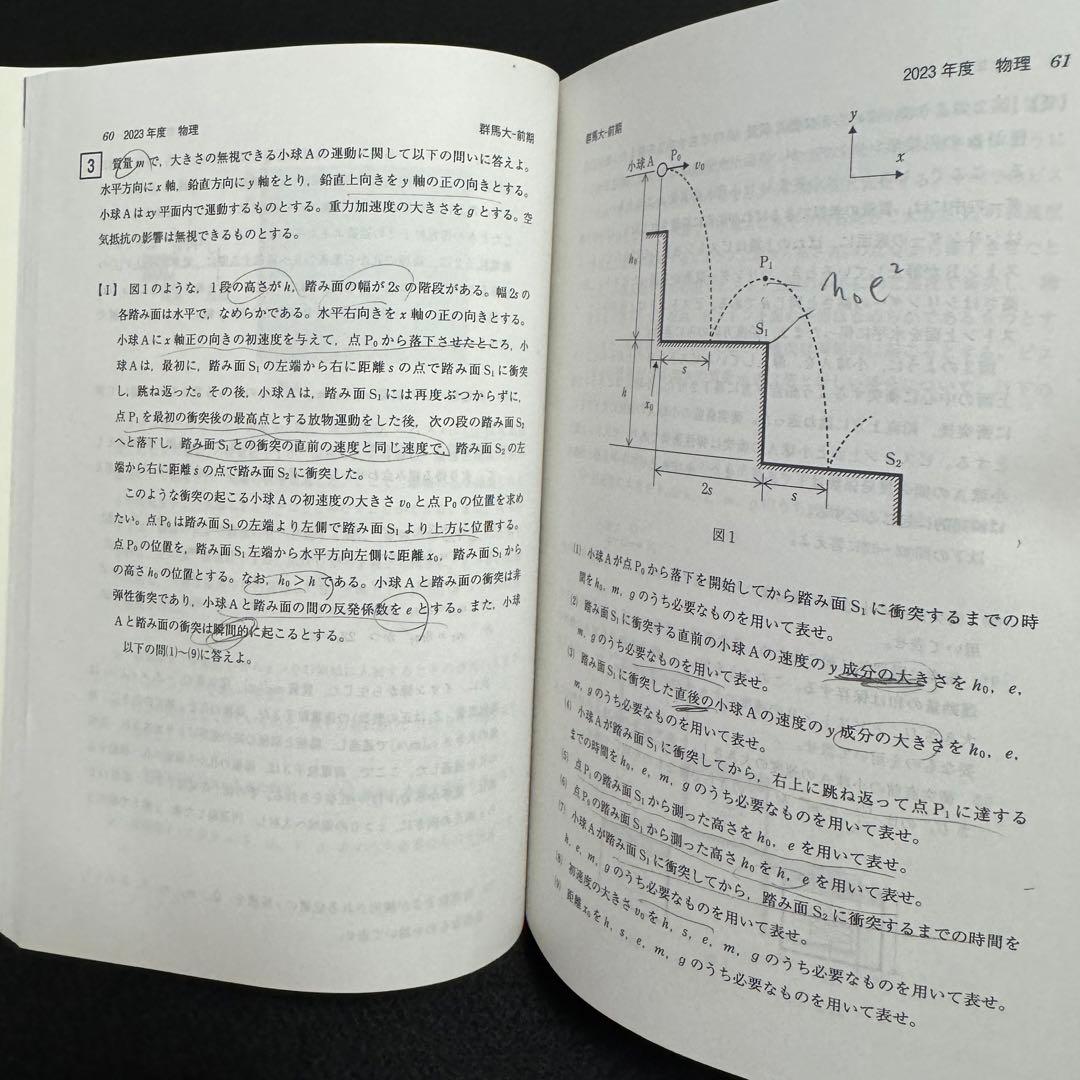 60 2023年度 物理 群馬大-前期
3 質量mで,大きさの無視できる小球Aの運動に関して以下の問いに答えよ。
水平方向にx軸,鉛直方向にy軸をとり,鉛直上向きをy軸の正の向きとする。
小球Aはxy平面内で運動するものとする。重力加速度の大きさをgとする。空
気抵抗の影響は無視できるものとする。
〔Ⅰ〕 図1のような,1段の高さがh,踏み面の幅が2sの階段がある。幅2sの
各踏み面は水平で,なめらかである。水平右向きをx軸の正の向きとする。
小球Aにx軸正の向きの初速度を与えて,点P₀から落下させたところ,小
球Aは,最初に,踏み面S₁の左端から右に距離sの点で踏み面S₁に衝突
し,跳ね返った。その後,小球Aは,踏み面S₁には再度ぶつからずに,
点P₁を最初の衝突後の最高点とする放物運動をした後,次の段の踏み面S₂
へと落下し,踏み面S₁との衝突の直前の速度と同じ速度で,踏み面S₂の左
端から右に距離sの点で踏み面S₂に衝突した。
このような衝突の起こる小球Aの初速度の大きさv₀と点P₀の位置を求め
たい。点P₀は踏み面S₁の左端より左側で踏み面S₁より上方に位置する。
点P₀の位置を,踏み面S₁左端から水平方向左側に距離x₀,踏み面S₁から
の高さh₀の位置とする。なお,h₀>hである。小球Aと踏み面の衝突は非
弾性衝突であり,小球Aと踏み面の間の反発係数をeとする。また,小球
Aと踏み面の衝突は瞬間的に起こるとする。
以下の問(1)~(9)に答えよ。
群馬大-前期 2023年度 物理 61
y
x
小球A P₀ v₀
h₀
P₁
h₀e²
S₁
s
h
x₀
S₂
2s s
図1
(1) 小球Aが点P₀から落下を開始してから踏み面S₁に衝突するまでの時
間をh₀,m,gのうち必要なものを用いて表せ。
(2) 踏み面S₁に衝突する直前の小球Aの速度のy成分の大きさをh₀,e,
m,gのうち必要なものを用いて表せ。
(3) 踏み面S₁に衝突した直後の小球Aの速度のy成分の大きさをh₀,e,
m,gのうち必要なものを用いて表せ。
(4) 小球Aが踏み面S₁に衝突してから,右上に跳ね返って点P₁に達する
までの時間をh₀,e,m,gのうち必要なものを用いて表せ。
(5) 点P₁の踏み面S₁から測った高さをh₀,eを用いて表せ。
(6) 点P₀の踏み面S₁から測った高さh₀をh,eを用いて表せ。
(7) 小球Aが踏み面S₁に衝突してから,踏み面S₂に衝突するまでの時間を
h,e,m,gのうち必要なものを用いて表せ。
(8) 初速度の大きさv₀をh,s,e,m,gのうち必要なものを用いて表せ。
(9) 距離x₀をh,s,e,m,gのうち必要なものを用いて表せ。